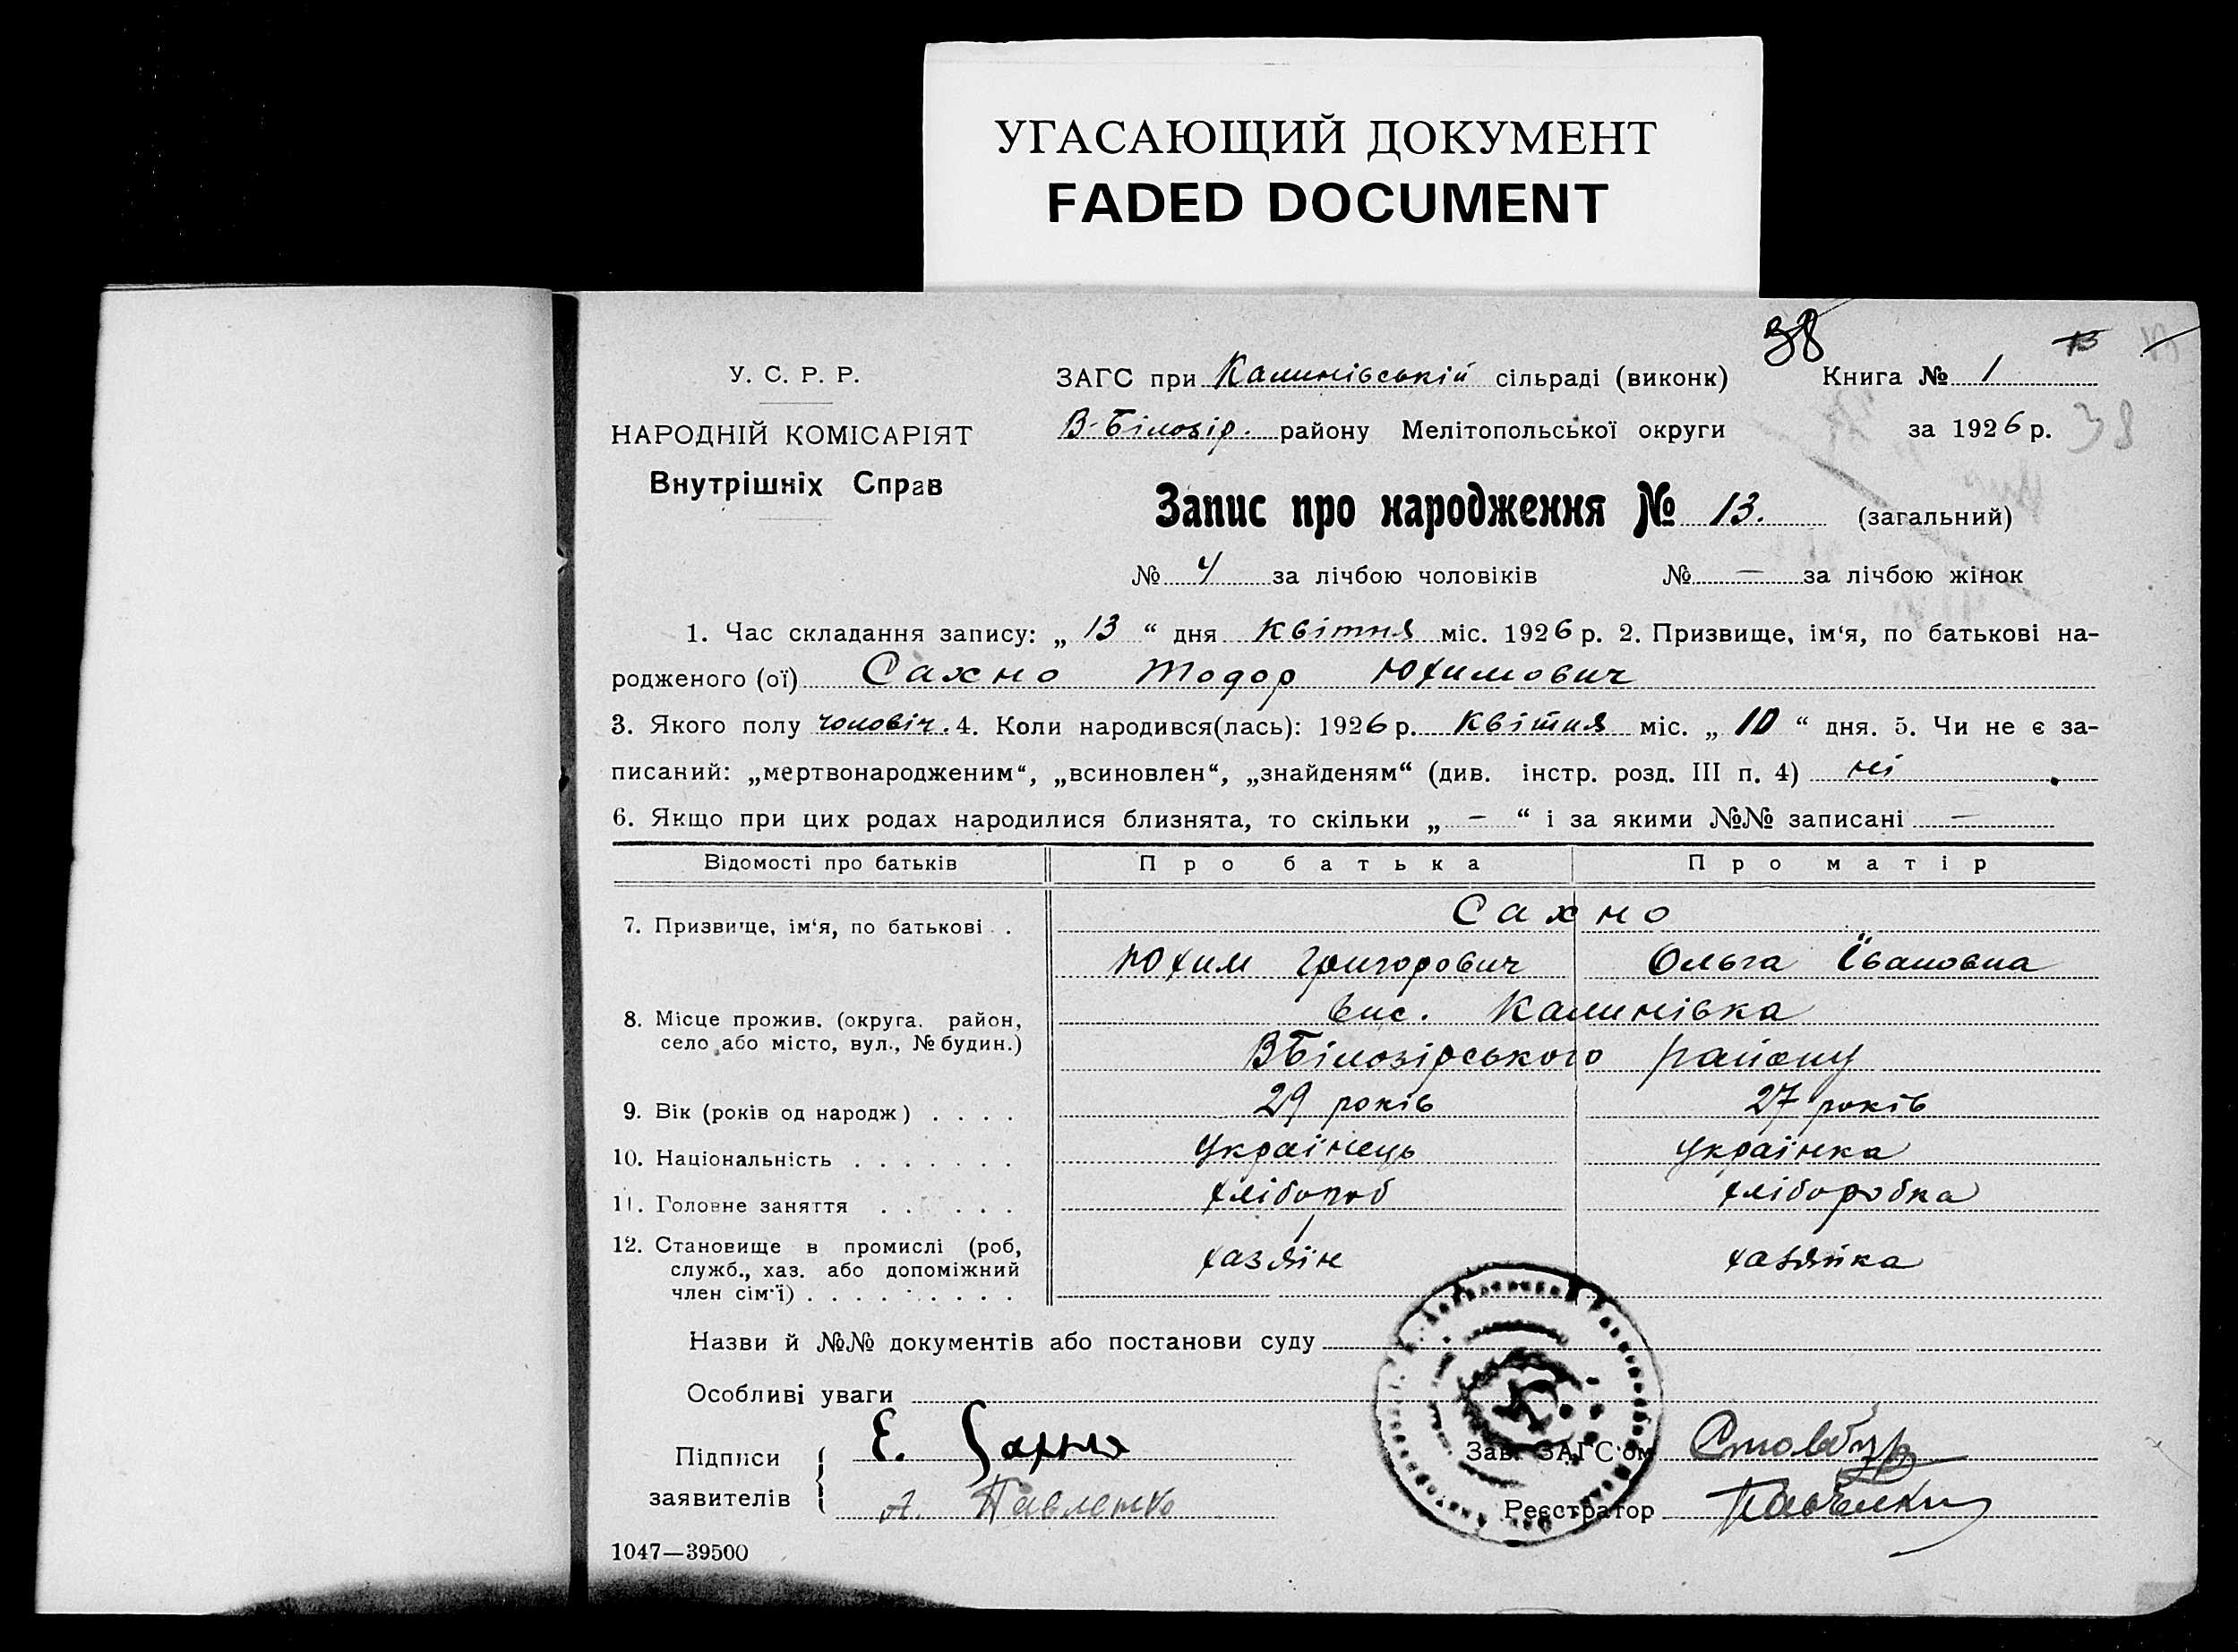 УГАСАЮЩИЙ ДОКУМЕНТ
FADED DOCUMENT
38
13
У. С. Р. Р.
ЗАГС при Калинівській сільраді (виконк) Книга № 1
НАРОДНІЙ КОМІСАРІЯТ
В-Білозір. району Мелітопольської округи за 1926 р. 38
Внутрішніх Справ
Запис про народження № 13. (загальний)
№ 4 за лічбою чоловіків № — за лічбою жінок
1. Час складання запису: „ 13 “ дня Квітня міс. 1926 р. 2. Призвище, ім‘я, по батькові на-
родженого (ої) Сахно Тодор Юхимович
3. Якого полу чоловіч. 4. Коли народився(лась): 1926 р. Квітня міс. „ 10 “ дня. 5. Чи не є за-
писаний: „мертвонародженим“, „всиновлен“, „знайденям“ (див. інстр. розд. III п. 4) ні
6. Якщо при цих родах народилися близнята, то скільки „ — “ і за якими №№ записані —
Відомості про батьків Про батька Про матір
7. Призвище, ім‘я, по батькові . Сахно
Юхим Григорович Ольга Івановна
8. Місце прожив. (округа. район, вис. Калинівка
село або місто, вул., № будин.) ВБілозірського району
9. Вік (років од народж) . . . . 29 років 27 років
10. Національність . . . . . . . Українець Українка
11. Головне заняття . . . . . . хлібороб хліборобка
12. Становище в промислі (роб,
служб., хаз. або допоміжний хазяїн хазяйка
член сім‘ї) . . . . . . . . .
Назви й №№ документів або постанови суду
Особливі уваги
Підписи Е. Сахно Зав. ЗАГС‘ом Стовбур
заявителів А. Павленко Реєстратор
1047—39500